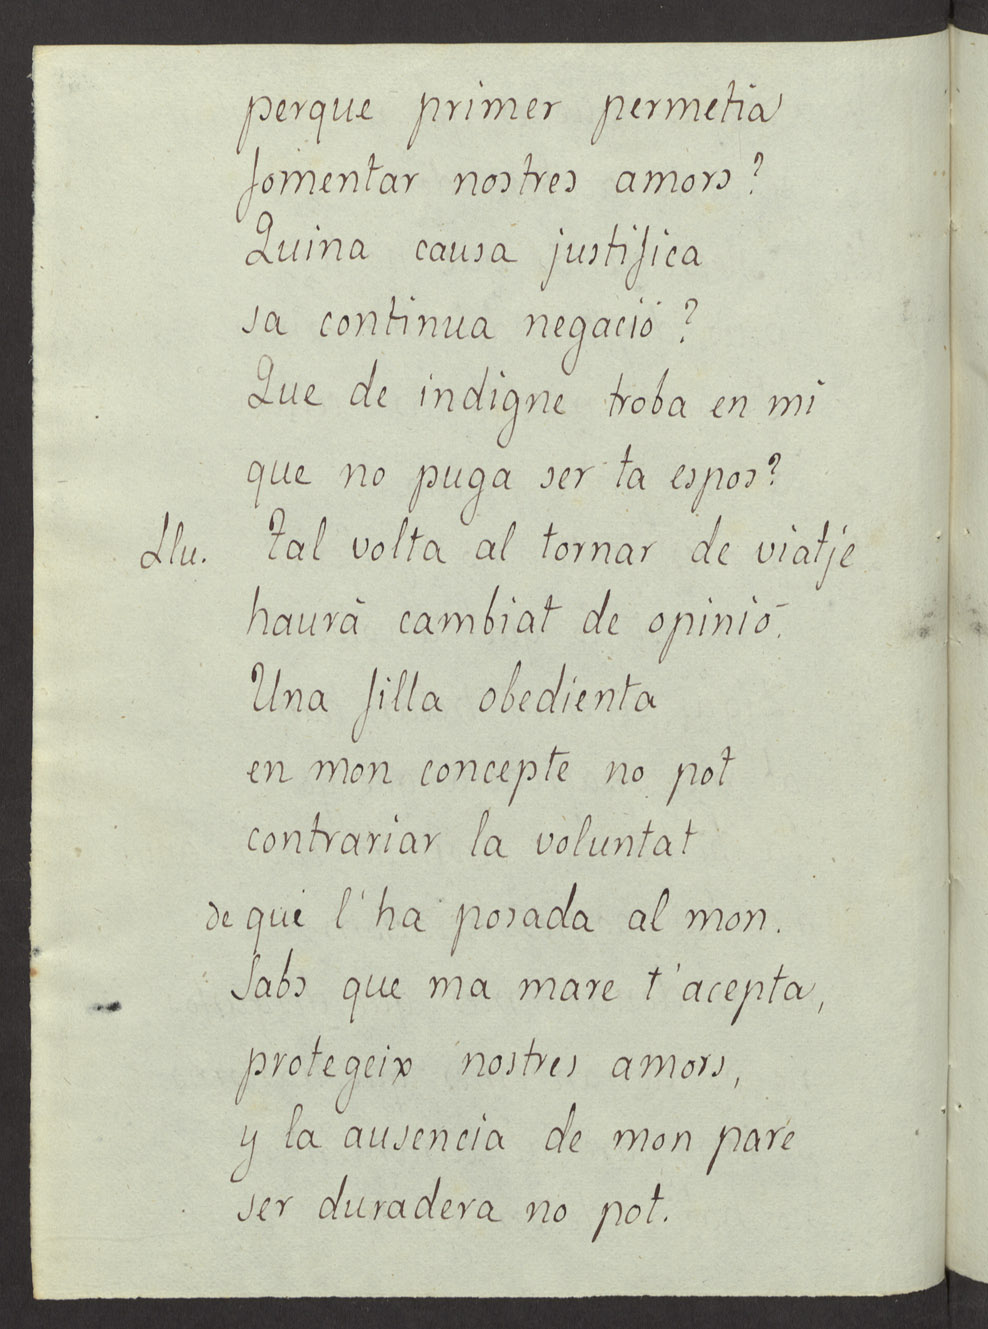 perque primer permetia
fomentar nostres amors?
Quina causa justifica
sa continua negació?
Que de indigne troba en mi
que no puga ser ta espos?
Llu. Tal volta al tornar de viatje
haurà cambiat de opinió.
Una filla obedienta
en mon concepte no pot
contrariar la voluntat
de qui l'ha posada al mon.
Sabs que ma mare t'acepta,
protegeix nostres amors,
y la ausencia de mon pare
ser duradera no pot.